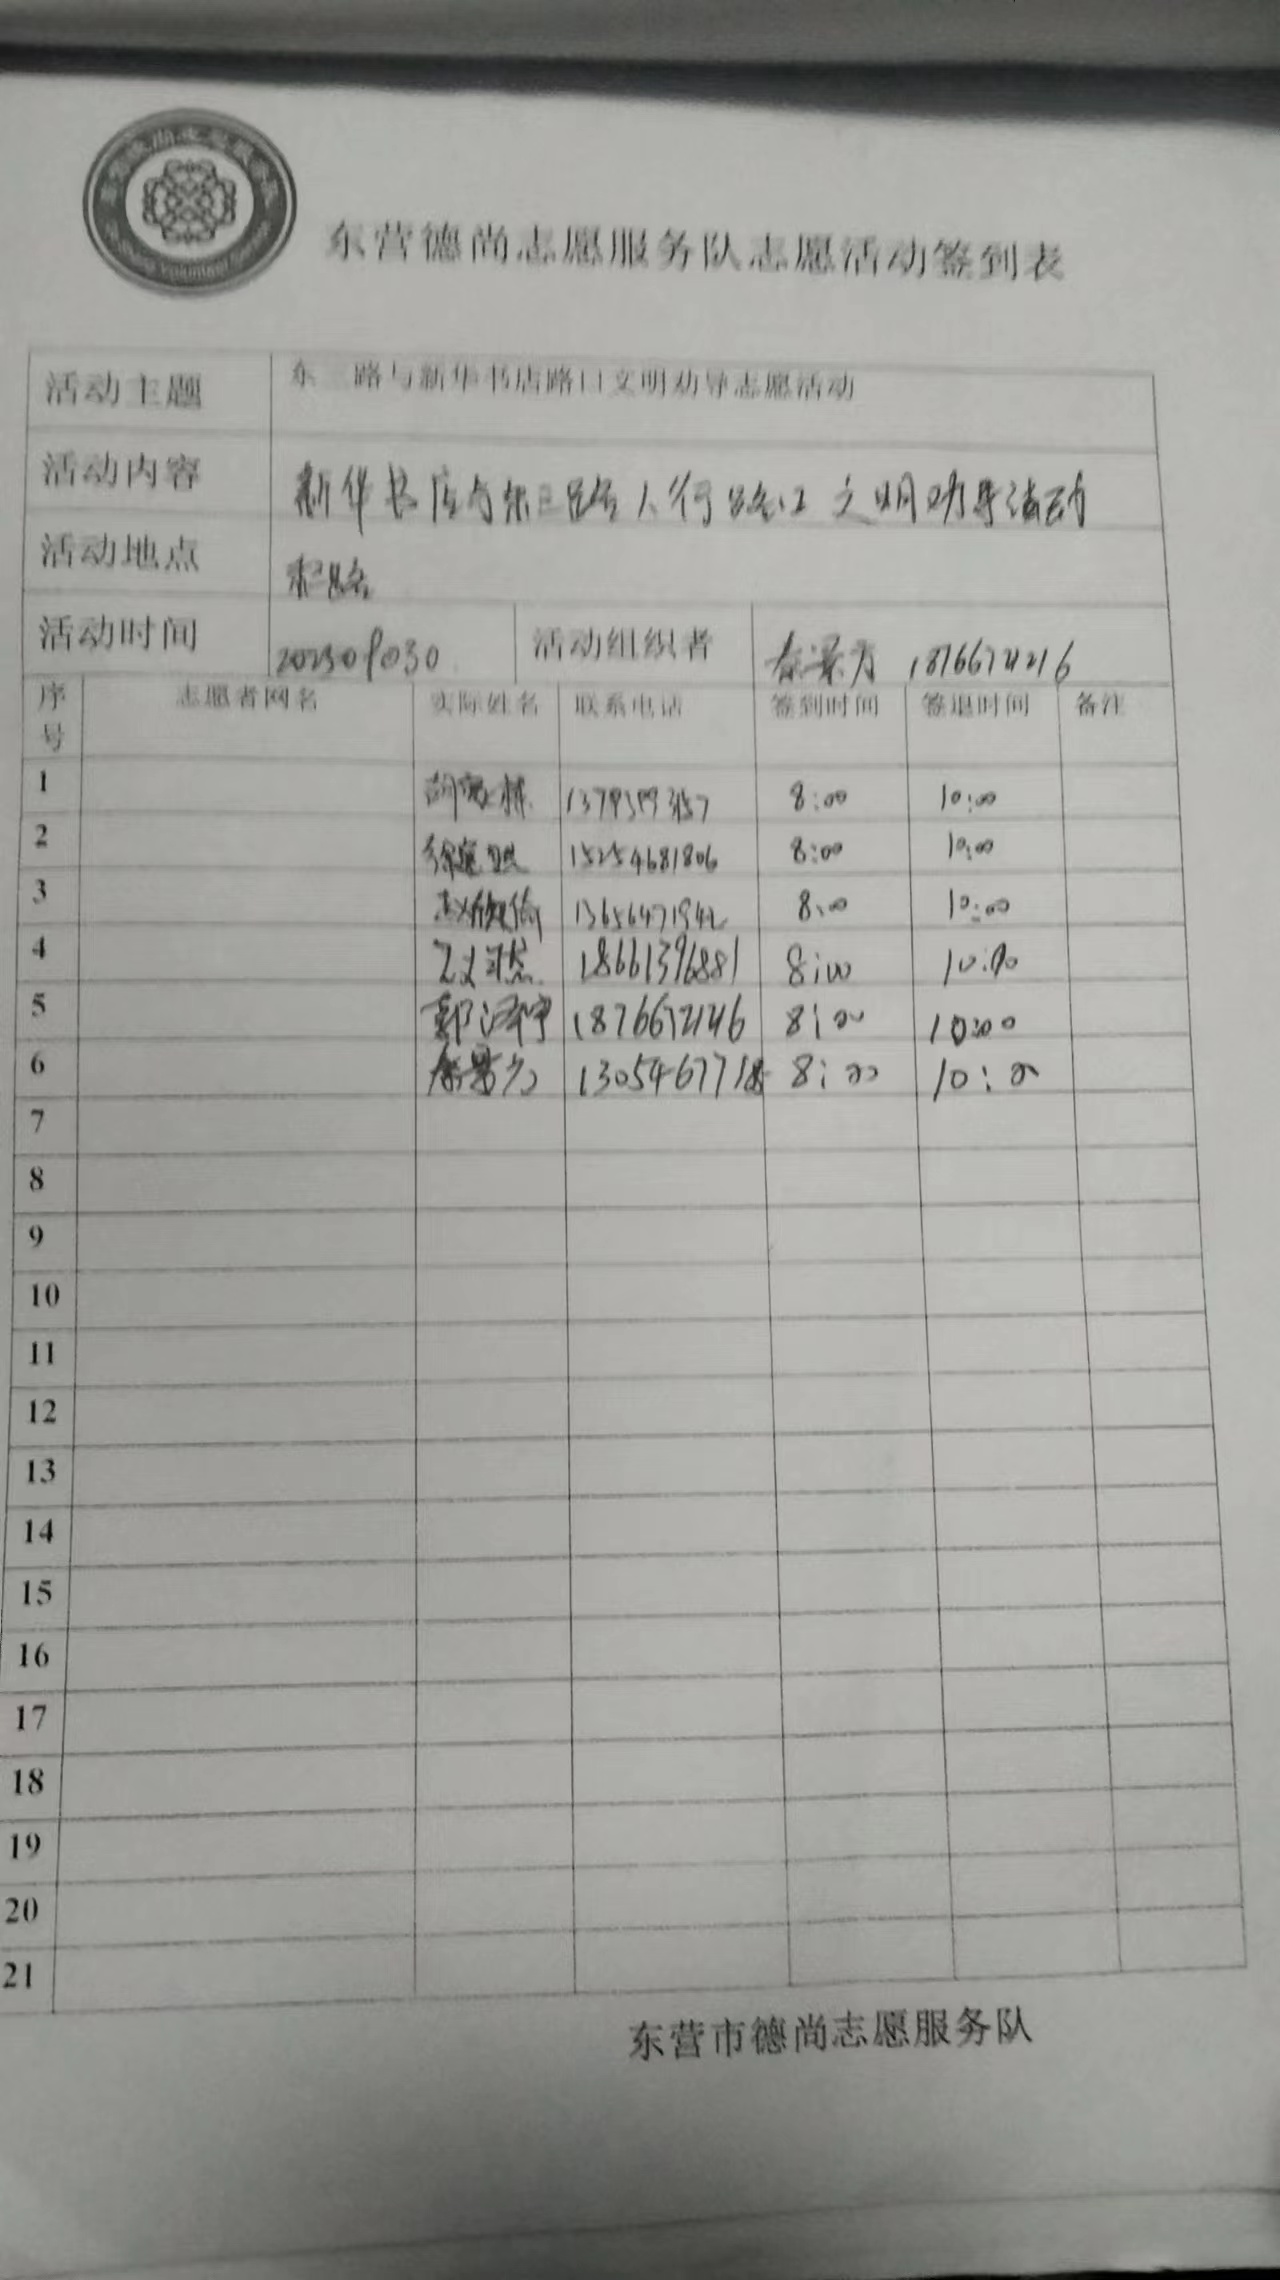 东营德尚志愿服务队志愿活动签到表
活动主题 东二路与新华书店路口文明劝导志愿活动
活动内容 新华书店与东二路人行路口文明劝导活动
活动地点 东二路
活动时间 202309030 活动组织者
序号 志愿者网名 实际姓名 联系电话 签到时间 签退时间 备注
1 8:00 10:00
2 15254681806 8:00 10:00
3 8:00 10:00
4 18661396881 8:00 10:00
5 郭泽宇 18766721216 8:00 10:00
6 8:00 10:00
7
8
9
10
11
12
13
14
15
16
17
18
19
20
21
东营市德尚志愿服务队